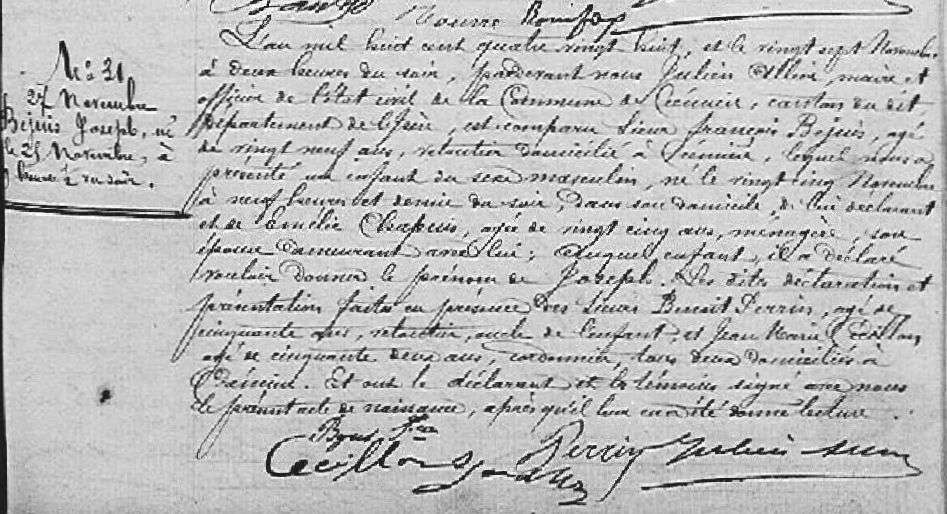 Nourre Bonifoy
N° 31
27 Novembre
Bejuis Joseph, né
le 25 Novembre, à
9 heures ½ du soir.
L'an mil huit cent quatre vingt huit, et le vingt sept Novembre
à deux heures du soir, pardevant nous Julien maire et
officier de l'état civil de la Commune de Crémieu, canton du dit
département de l'Isère, est comparu Sieur françois Bejuis, agé
de vingt neuf ans, domicilié à Crémieu, lequel nous a
présenté un enfant du sexe masculin, né le vingt cinq Novembre
à neuf heures et demie du soir, dans son domicile, de lui déclarant
et de Emélie Chapuis, agée de vingt cinq ans, ménagère, son
épouse demeurant avec lui; auquel enfant, il a déclaré
vouloir donner le prénom de Joseph. Les dites déclaration et
présentation faites en présence des Sieurs Benoit Perrin, agé de
cinquante ans, oncle de l'enfant, et Jean Marie Cécillon,
agé de cinquante deux ans, cordonnier, tous deux domiciliés à
Crémieu. Et ont le déclarant et les témoins signé avec nous
le présent acte de naissance, après qu'il leur en a été donné lecture.
Cecillon Perrin Julien